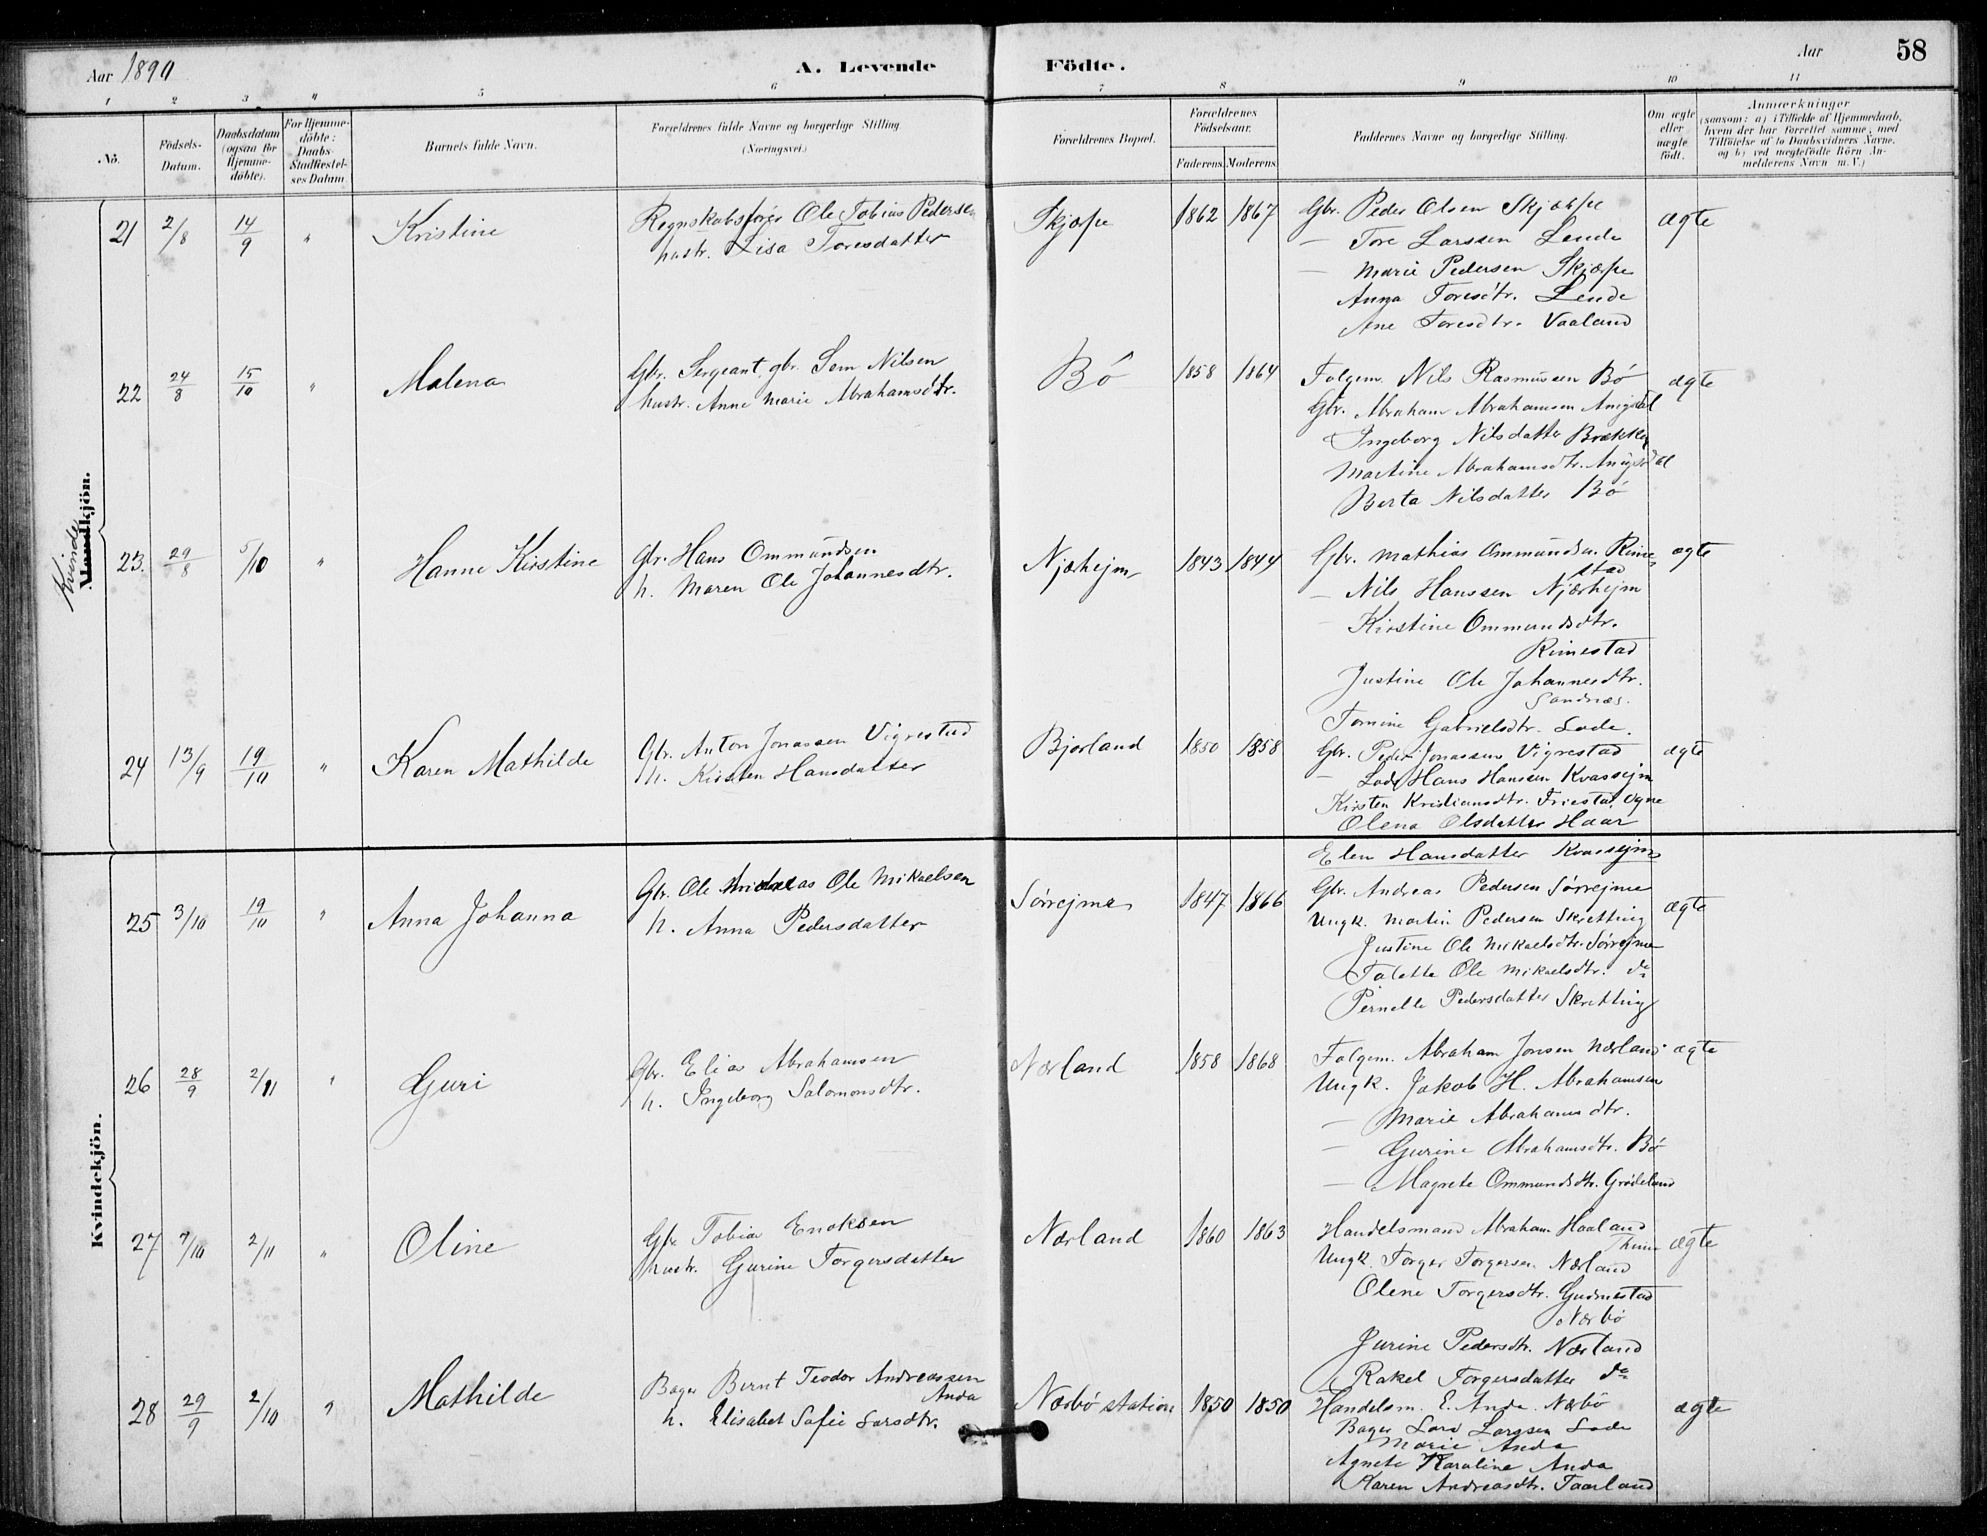 Aar 1890 A. Levende Födte. Aar 58
1 2 3 4 5 6 7 8 9 10 11
No.
Födsels-Datum.
Daabsdatum (ogsaa for Hjemme-döbte).
For Hjemme-döbte: Daabs-Stadfæstel-ses Datum.
Barnets fulde Navn.
Forældrenes fulde Navne og borgerlige Stilling (Næringsvei.)
Forældrenes Bopæl.
Forældrenes Födselsaar.
Faderens. Moderens.
Faddernes Navne og borgerlige Stilling.
Om ægte eller uægte födt.
Anmærkninger
(saasom: a) i Tilfælde af Hjemmedaab, hvem der har forrettet samme, med Tilföielse af to Daabsvidners Navne, og b) ved uægtefödte Börn An-melderens Navn m.V.)
Kvinde Mandkjön.
21 2/8 14/9 " Kristine
Regnskabsfører Ole Tobias Pedersen
hustr. Lisa Toresdatter
Skjæpe 1862 1867
Gbr. Peder Olsen Skjæpe
— Tore Larssen Lende
— Marie Pedersen Skjæpe
Anna Toresdtr. Lende
Ane Toresdtr. Vaaland
ægte
22 24/8 15/10 " Malena
Gbr. Sergeant, gbr. Sem Nilsen
hustr. Anne Marie Abrahamsdtr.
Bö 1858 1864
Folgem. Nils Rasmussen Bö
Gbr. Abraham Abrahamsen
Ingeborg Nilsdatter Brække
Martine Abrahamsdtr.
Berta Nilsdatter Bö
ægte
23. 29/8 5/10 " Hanne Kirstine
Gbr. Hans Ommundsen
h. Maren Ole Johannesdtr.
Njærhejm 1843 1844
Gbr. Mathias Ommundsen Rime
stad
— Nils Hanssen Njærhejm
Kirstine Ommundsdtr.
Rimestad
Justine Ole Johannesdtr.
Sandnæs.
Tomine Gabrielsdtr. Lode.
ægte
24 13/9 19/10 " Karen Mathilde
Gbr. Anton Jonassen Vigrestad
h. Kirsten Hansdatter
Bjorland 1850 1858
Gbr. Peder Jonassens Vigrestad
— Hans Hansen Kvassejm
Kirsten Kristiansdtr. Friestad Ogne
Olena Olsdatter Haar
Elen Hansdatter Kvassejm
ægte
Kvindekjön.
25 3/10 19/10 " Anna Johanna
Gbr. Ole Ole Mikaelsen
h. Anna Pedersdatter
Sörrejme 1847 1866
Gbr. Andreas Pedersen Sörrejme
Ungk. Martin Pedersen Skretting
Justine Ole Mikaelsdtr. Sörrejme
Talette Ole Mikaelsdtr. do
Pernelle Pedersdatter Skretting
ægte
26 28/9 2/11 " Guri
Gbr. Elias Abrahamsen
h. Ingeborg Salomonsdtr.
Nærland 1858 1868
Folgem. Abraham Jonsen Nærland
Ungk. Jakob H. Abrahamsen
— Marie Abrahamsdtr.
— Gurine Abrahamsdtr. Bö
— Magrete Ommundsdtr. Grödeland
ægte
27 7/10 2/11 " Oline
Gbr Tobias Enoksen
hustr. Gurine Torgersdatter
Nærland 1860 1863
Handelsmand Abraham Haaland
Thime
Ungk. Torger Torgersen Nærland
Olene Torgersdtr. Gudmestad
Nærbö
Jurine Pedersdtr. Nærland
Rakel Torgersdatter do
ægte
28 29/9 2/10 " Mathilde
Bager Bernt Teodor Andreassen
Anda
h. Elisabet Sofie Larsdtr.
Nærbö station 1850 1850
Handelsm. E. Anda. Nærbö
Bager Lars Larssen Lode
Marie Anda
Agnete Karoline Anda
Karen Andreasdtr. Taarland
ægte